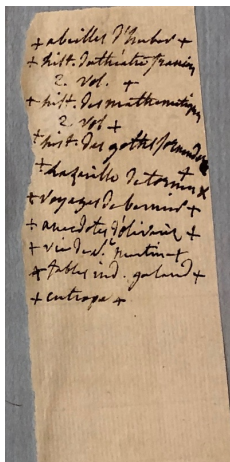 + abeilles d'huber +
+ hist. du théatre français
2. vol. +
+ hist. des mathematiques
2. vol +
+ hist. des goths jornandes
+
+ Lazarille de tormes X
+ voyages de bernier +
+ anecdotes
+ vie de St. martin +
+ fables ind. galand +
+ eutrope +